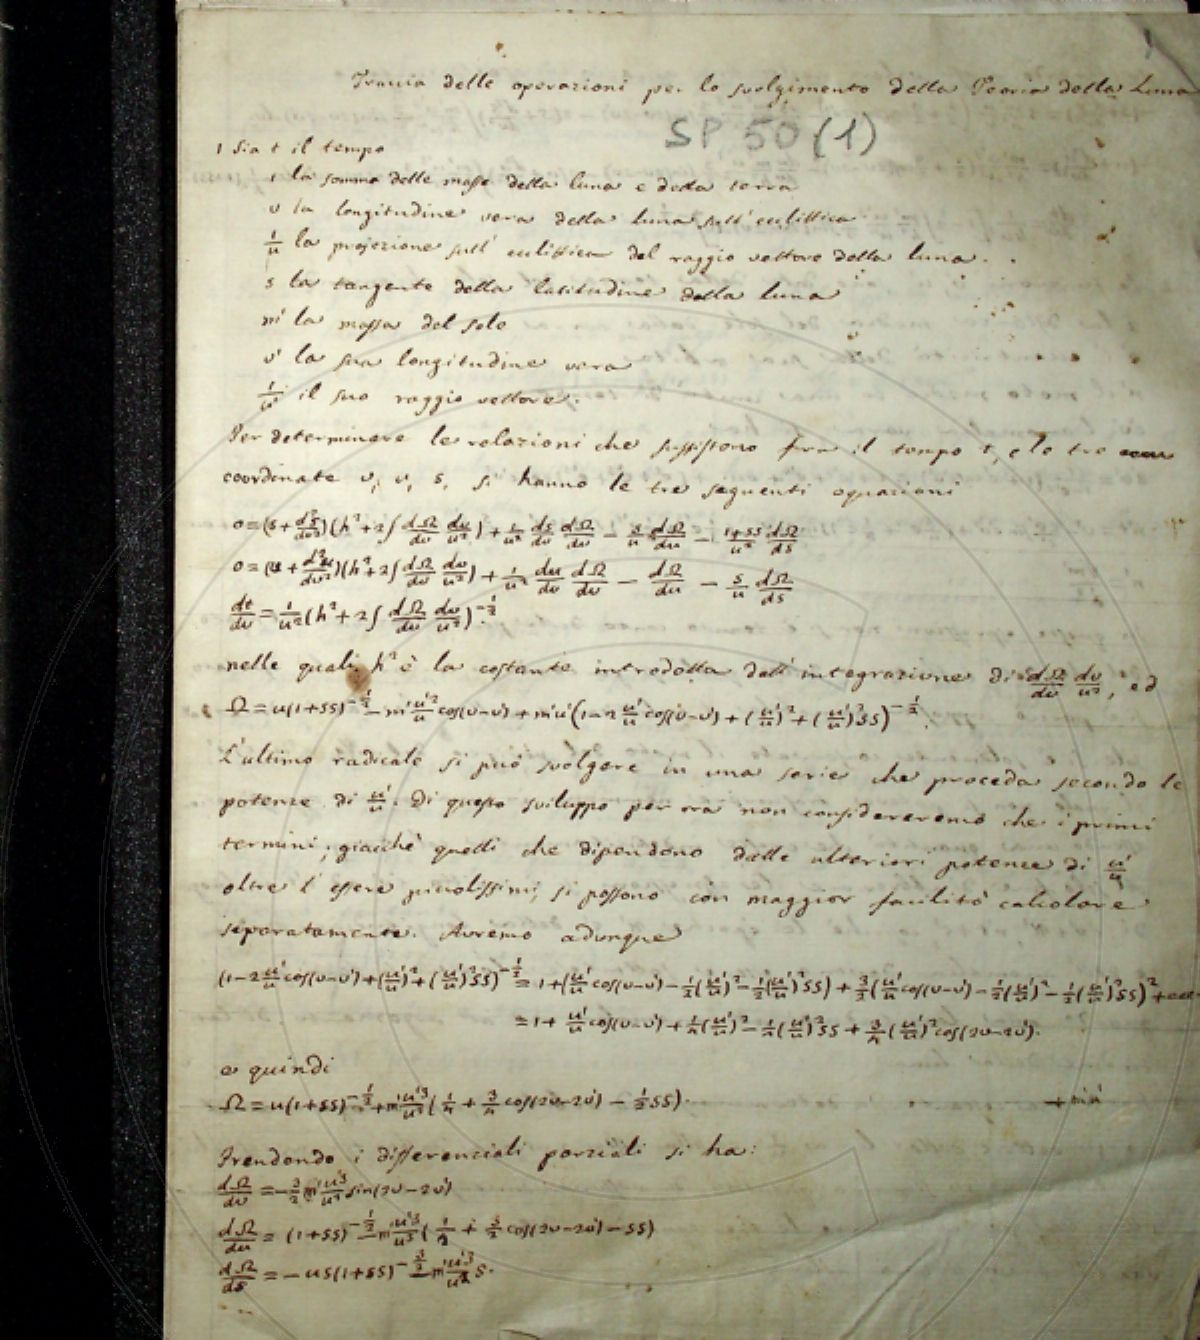 Traccia delle operazioni per lo svolgimento della Teoria della Luna
SP 50 (1)
1 Sia t il tempo
1 la somma delle masse della luna e della terra
v la longitudine vera della luna sull'eclittica
1/u la projezione sull'eclittica del raggio vettore della luna.
s la tangente della latitudine della luna
m' la massa del sole
v' la sua longitudine vera
1/u' il suo raggio vettore.
Per determinare le relazioni che sussistono fra il tempo t, e le tre
coordinate v, u, s, si hanno le tre seguenti equazioni
0=(s+d²s/dv²)(h²+2∫dΩ/dv du/u²)+1/u² ds/dv dΩ/dv − s/u dΩ/du − 1+ss/u² dΩ/ds
0=(u+d²u/dv²)(h²+2∫dΩ/dv dv/u²)+1/u² du/dv dΩ/dv − dΩ/du − s/u dΩ/ds
dt/dv=1/u²(h²+2∫dΩ/dv dv/u²)^−1/2.
nelle quali h² è la costante introdotta dall'integrazione di dΩ/dv dv/u², ed
Ω=u(1+ss)^−1/2−m'u'²/u cos(v−v')+m'u'(1−2u'/u cos(v−v')+(u'/u)²+(u'/u)²ss)^−1/2.
L'ultimo radicale si può svolgere in una serie che proceda secondo le
potenze di u'/u. Di questo sviluppo per ora non considereremo che i primi
termini; giacchè quelli che dipendono dalle ulteriori potenze di u'/u
oltre l'essere piccolissimi, si possono con maggior facilità calcolare
separatamente. Avremo adunque
(1−2u'/u cos(v−v')+(u'/u)²+(u'/u)²ss)^−1/2=1+(u'/u cos(v−v')−1/2(u'/u)²−1/2(u'/u)²ss)+3/2(u'/u cos(v−v')−1/2(u'/u)²−1/2(u'/u)²ss)²+
=1+u'/u cos(v−v')+1/4(u'/u)²−1/2(u'/u)²ss+3/4(u'/u)²cos(2v−2v').
e quindi
Ω=u(1+ss)^−1/2+m'u'³/u²(1/4+3/4 cos(2v−2v')−1/2ss). +m'u'
Prendendo i differenziali parziali si ha:
dΩ/dv=−3/2 m'u'³/u² sin(2v−2v')
dΩ/du=(1+ss)^−1/2−m'u'³/u³(1/2+3/2 cos(2v−2v')−ss)
dΩ/ds=−us(1+ss)^−3/2−m'u'³/u² s.